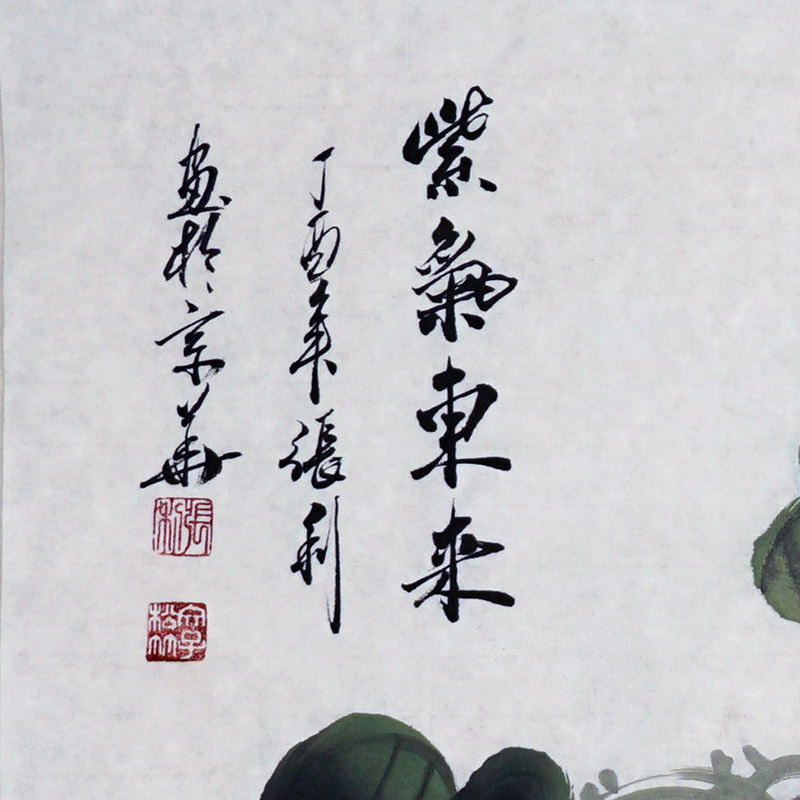 紫氣東来
丁酉年張利
畫於京華
張利